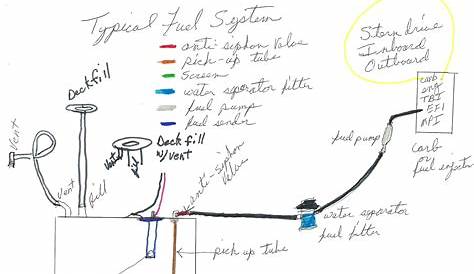 Typical Fuel System
anti-siphon valve
pick-up tube
screen
water seperator filter
fuel pump
fuel sender
Stern drive
Inboard
Outboard
Deckfill
Vent
Vented
fill
Deckfill
w/vent
carb
eng
TBI
EFI
MPI
fuel pump
carb
or
fuel inject
vent
fill
anti-siphon
Valve
water seperator
fuel filter
pick up tube